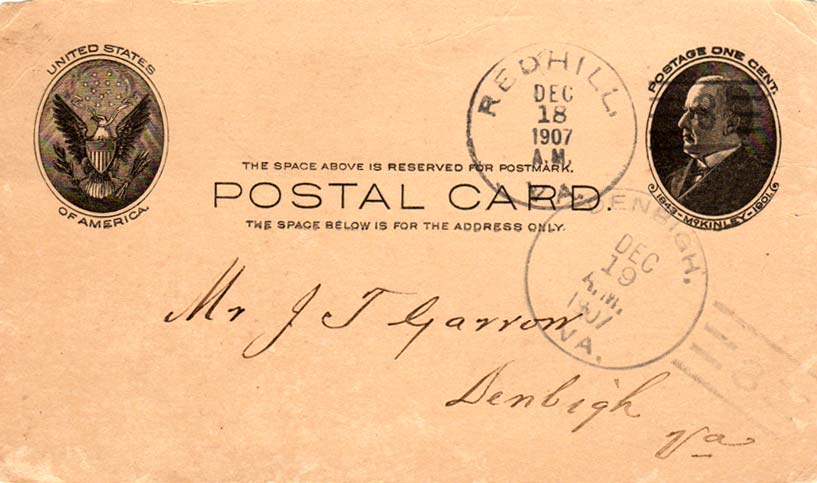 UNITED STATES
OF AMERICA.
POSTAGE ONE CENT.
1843-McKINLEY-1901.
REDHILL,
DEC
18
1907
A.M.
VA.
THE SPACE ABOVE IS RESERVED FOR POSTMARK.
POSTAL CARD.
THE SPACE BELOW IS FOR THE ADDRESS ONLY.
DENBIGH,
DEC
19
A.M.
1907
VA.
Mr J T Garrow
Denbigh
Va